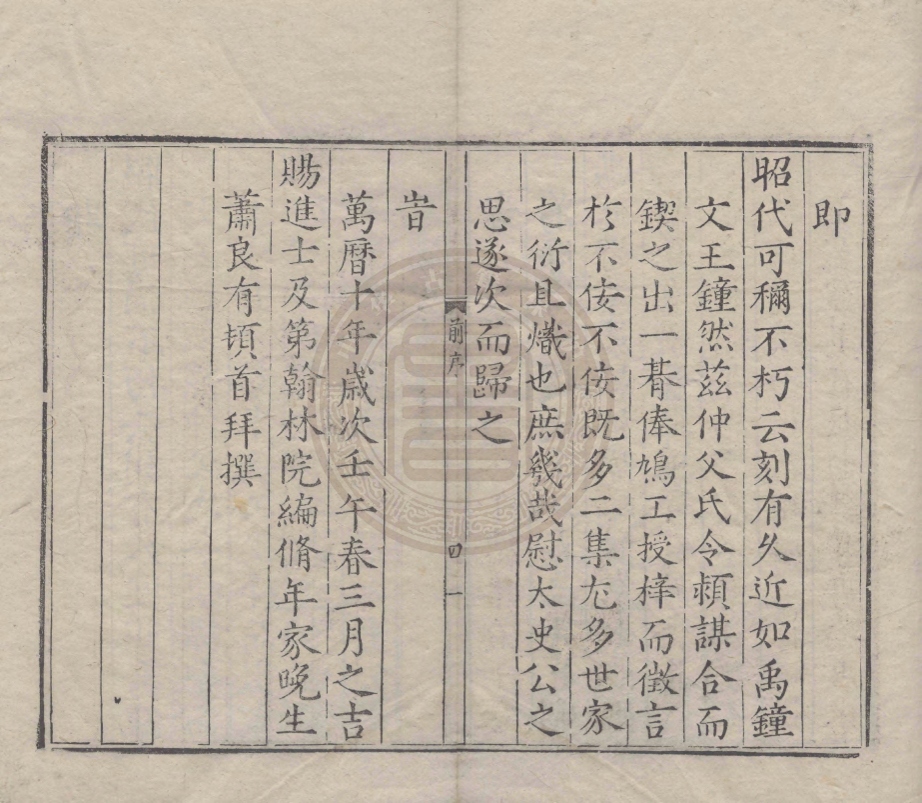 即
昭代可稱不朽云刻有久近如禹鐘
文王鐘然茲仲父氏令頼謀合而
鍥之出一朞俸鳩工授梓而徵言
於不佞不佞既多二集尤多世家
之衍且熾也庶幾哉慰太史公之
思遂次而歸之
前序
四一
旹
萬曆十年歲次壬午春三月之吉
賜進士及第翰林院編脩年家晚生
蕭良有頓首拜撰